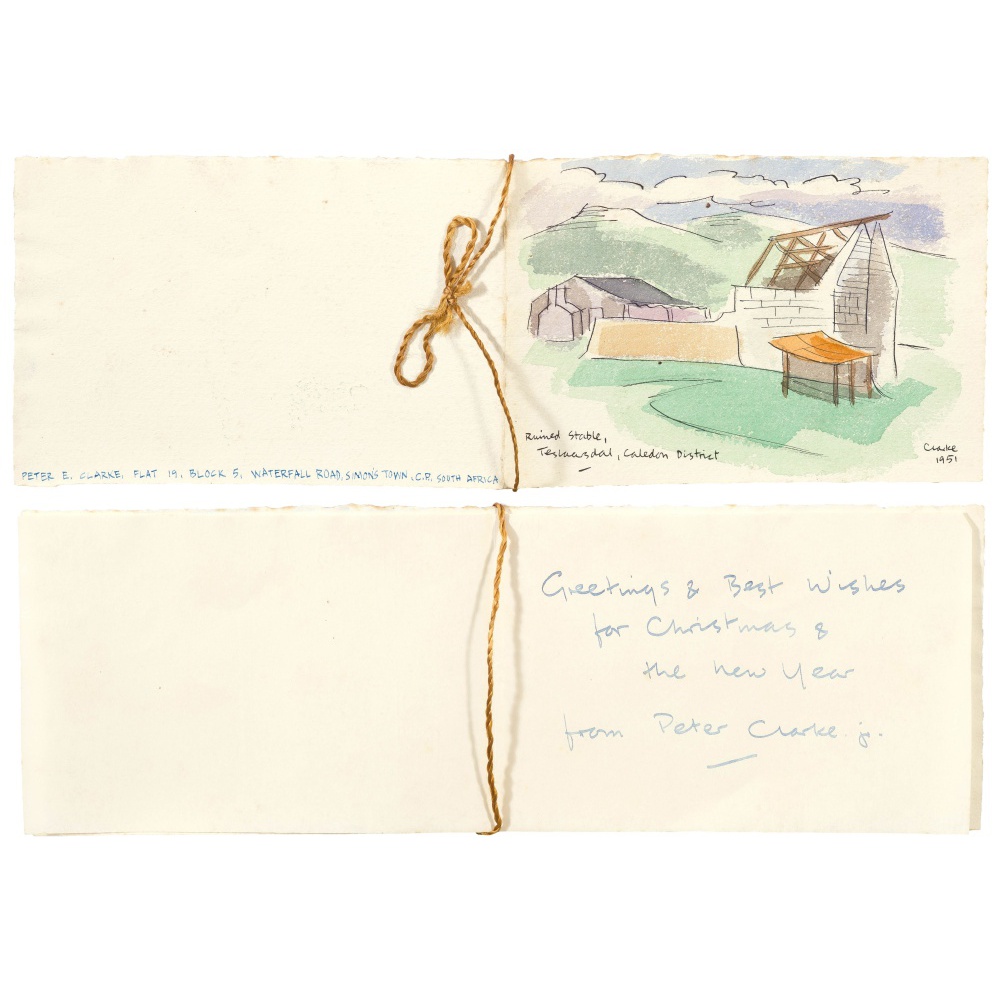 PETER E. CLARKE, FLAT 19, BLOCK 5, WATERFALL ROAD, SIMON'S TOWN, C.P. SOUTH AFRICA
Ruined Stable,
Teslaarsdal, Caledon District
Clarke
1951
Greetings & Best Wishes
for Christmas &
the new Year
from Peter Clarke. jr.